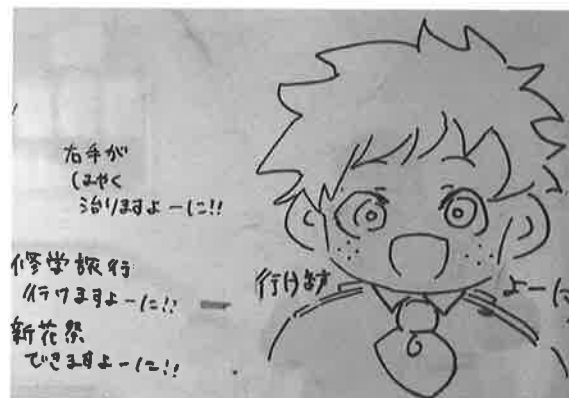 右手が
はやく
治りますよーに!!
修学旅行
行けますよーに!!
新花祭
できますよーに!!
行けます
よーに